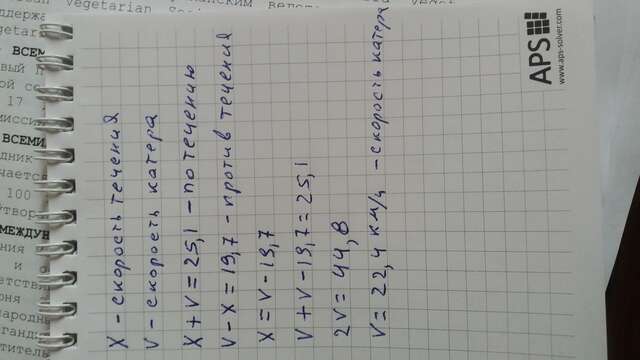 X - скорость течения
V - скорость катера
X + V = 25,1 - по течению
V - X = 19,7 - против течения
X = V - 19,7
V + V - 19,7 = 25,1
2V = 44,8
V = 22,4 км/ч - скорость катера
APS
www.aps-solver.com